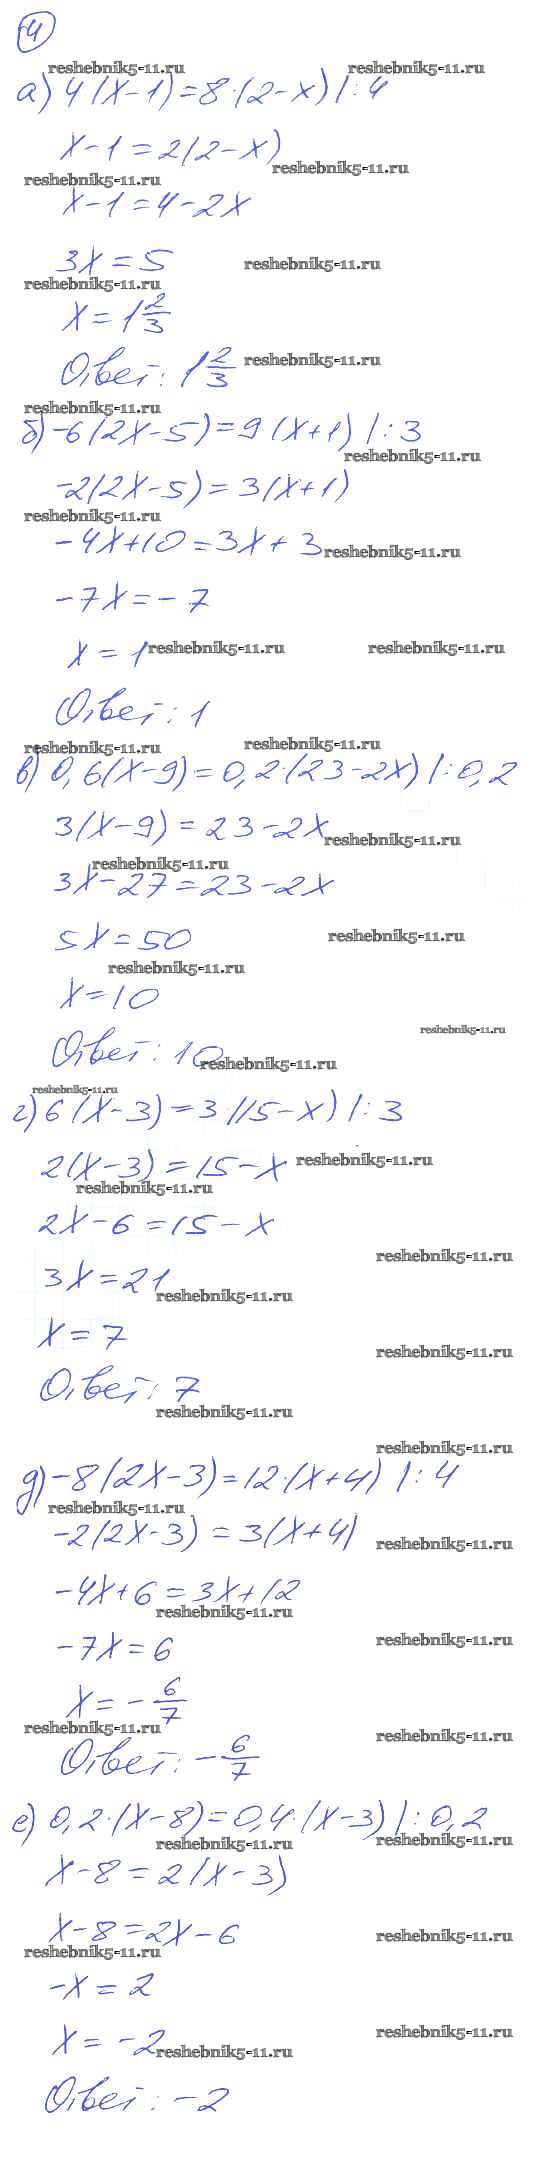 4
reshebnik5-11.ru reshebnik5-11.ru
а) 4(x-1)=8·(2-x) |:4
x-1=2(2-x)
reshebnik5-11.ru
reshebnik5-11.ru
x-1=4-2x
3x=5
reshebnik5-11.ru
reshebnik5-11.ru
x=1 2/3
Ответ: 1 2/3
reshebnik5-11.ru
reshebnik5-11.ru
б) -6(2x-5)=9·(x+1) |:3
reshebnik5-11.ru
-2(2x-5)=3(x+1)
reshebnik5-11.ru
-4x+10=3x+3
reshebnik5-11.ru
-7x=-7
x=1
reshebnik5-11.ru reshebnik5-11.ru
Ответ: 1
reshebnik5-11.ru reshebnik5-11.ru
в) 0,6(x-9)=0,2·(23-2x) |:0,2
3(x-9)=23-2x
reshebnik5-11.ru
reshebnik5-11.ru
3x-27=23-2x
5x=50
reshebnik5-11.ru
reshebnik5-11.ru
x=10
reshebnik5-11.ru
Ответ: 10
reshebnik5-11.ru
reshebnik5-11.ru
г) 6(x-3)=3·(15-x) |:3
2(x-3)=15-x
reshebnik5-11.ru
reshebnik5-11.ru
2x-6=15-x
reshebnik5-11.ru
3x=21
reshebnik5-11.ru
x=7
reshebnik5-11.ru
Ответ: 7
reshebnik5-11.ru
reshebnik5-11.ru
д) -8(2x-3)=12·(x+4) |:4
reshebnik5-11.ru
-2(2x-3)=3(x+4)
reshebnik5-11.ru
-4x+6=3x+12
reshebnik5-11.ru
-7x=6
reshebnik5-11.ru
x=-6/7
reshebnik5-11.ru
reshebnik5-11.ru
Ответ: -6/7
е) 0,2·(x-8)=0,4·(x-3) |:0,2
reshebnik5-11.ru reshebnik5-11.ru
x-8=2(x-3)
x-8=2x-6
reshebnik5-11.ru
reshebnik5-11.ru
-x=2
x=-2
reshebnik5-11.ru
reshebnik5-11.ru
Ответ: -2